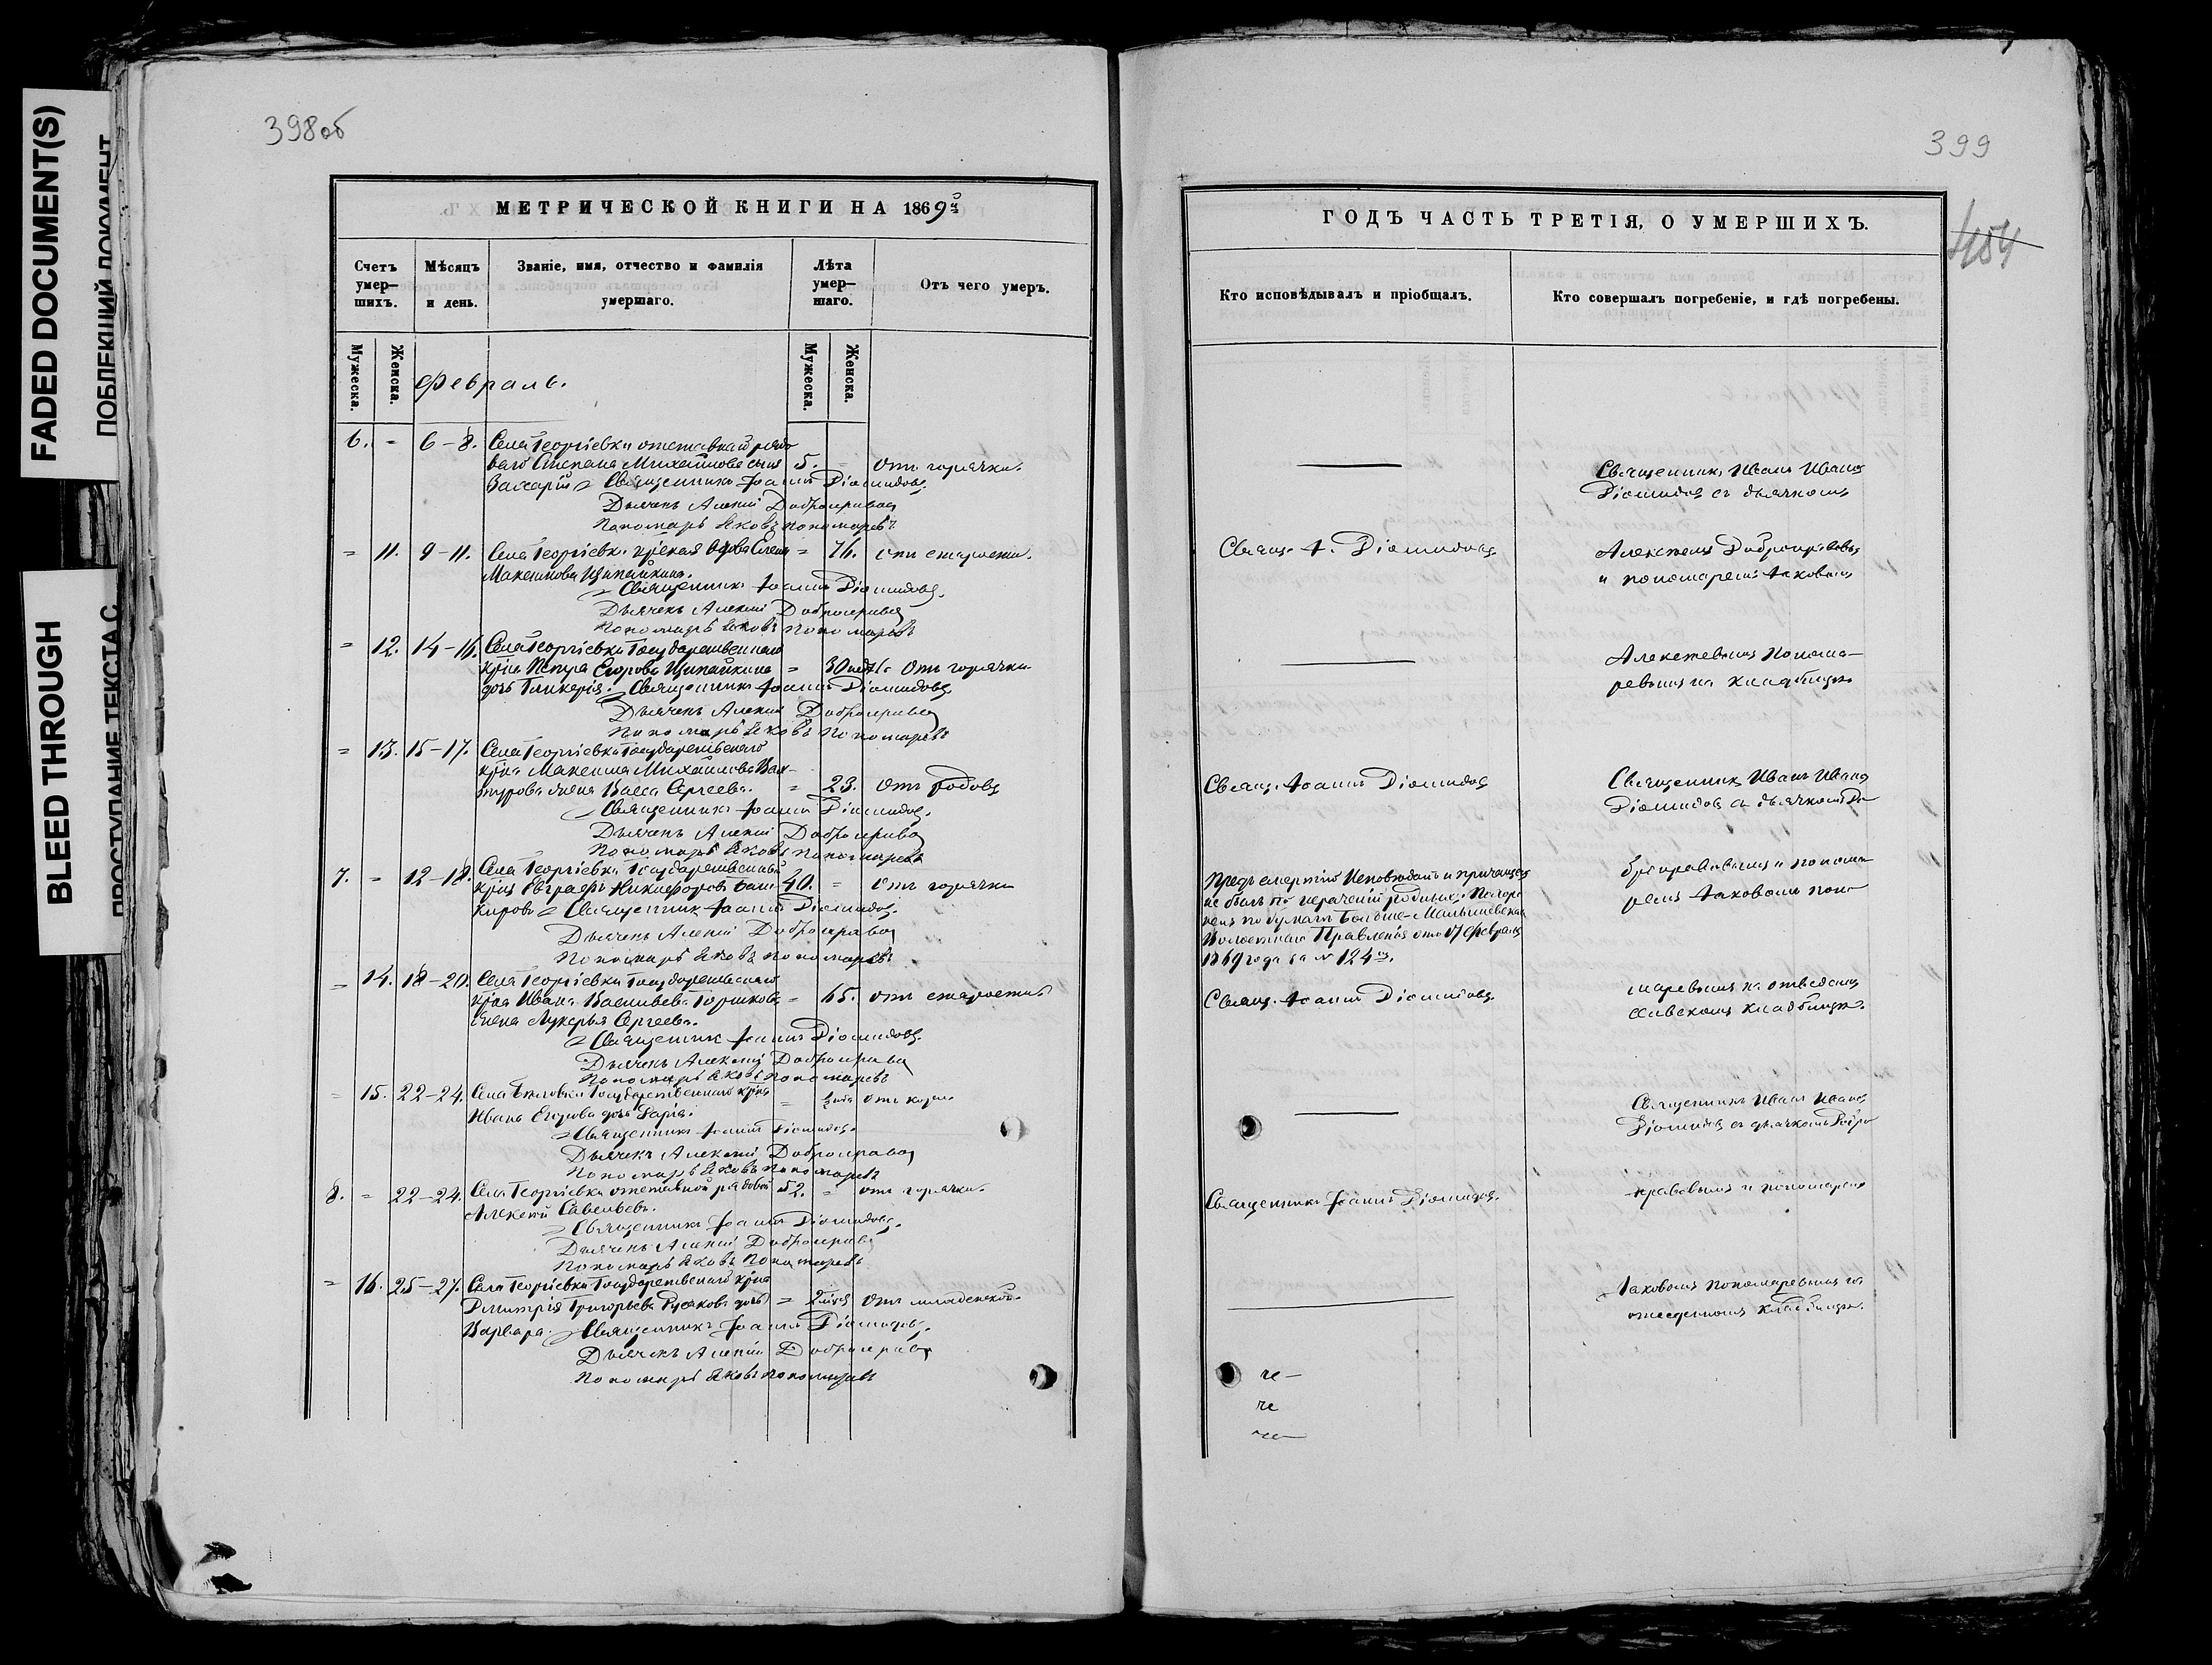 FADED DOCUMENT(S)
ПОБЛЕКШИЙ ДОКУМЕНТ
BLEED THROUGH
ПРОСТУПАНИЕ ТЕКСТА С
398об
МЕТРИЧЕСКОЙ КНИГИ НА 1869й
Счетъ умер-шихъ.
Мѣсяцъ и день.
Званіе, имя, отчество и фамилія умершаго.
Лѣта умер-шаго.
Отъ чего умеръ.
Мужеска.
Женска.
Февраль.
Мужеска.
Женска.
6. = 6-8. Села Георгіевки отставнаго рядо-
ваго Степана Михайлова сынъ 5. = отъ горячки.
Захарій Священникъ Іоаннъ Діомидовъ.
Дьячекъ Алексій Добронравовъ
Пономарь Яковъ Пономаревъ
= 11. 9-11. Села Георгіевки вдова Елена = 76. отъ старости.
Максимова Щипайкина.
Священникъ Іоаннъ Діомидовъ.
Дьячекъ Алексій Добронравовъ
Пономарь Яковъ Пономаревъ
= 12. 14-16. Села Георгіевки Государственнаго
кр-на Петра Егорова Щипайкина = 30 Отъ горячки
дочь Гликерія. Священникъ Іоаннъ Діомидовъ
Дьячекъ Алексій Добронравовъ
Пономарь Яковъ Пономаревъ
= 13. 15-17. Села Георгіевки Государственнаго
кр-на Максима Михайлова Вах-
турова жена Васса Сергеева. = 23. Отъ родовъ
Священникъ Іоаннъ Діомидовъ.
Дьячекъ Алексій Добронравовъ
Пономарь Яковъ Пономаревъ
7. = 12-18. Села Георгіевки Государственный
кр-нъ Евграфъ Никифоровъ Баш- 40. = Отъ горячки
кировъ Священникъ Іоаннъ Діомидовъ.
Дьячекъ Алексій Добронравовъ
Пономарь Яковъ Пономаревъ
= 14. 18-20. Села Георгіевки Государственнаго
кр-на Ивана Васильева Горшкова = 65. отъ старости
жена Лукерья Сергеева.
Священникъ Іоаннъ Діомидовъ.
Дьячекъ Алексій Добронравовъ
Пономарь Яковъ Пономаревъ
= 15. 22-24. Села Государственнаго кр-на
Ивана Егорова дочь Дарія. = отъ кори
Священникъ Іоаннъ Діомидовъ.
Дьячекъ Алексій Добронравовъ
Пономарь Яковъ Пономаревъ
8. = 22-24. Села Георгіевки отставной рядовой 52. = отъ горячки.
Алексій Савельевъ.
Священникъ Іоаннъ Діомидовъ.
Дьячекъ Алексій Добронравовъ
Пономарь Яковъ Пономаревъ
= 16. 25-27. Села Георгіевки Государственнаго кр-на
Димитрія Григорьева Русякова дочь = Отъ младенской.
Варвара. Священникъ Іоаннъ Діомидовъ.
Дьячекъ Алексій Добронравовъ
Пономарь Яковъ Пономаревъ
399
454
ГОДЪ ЧАСТЬ ТРЕТІЯ, О УМЕРШИХЪ.
Кто исповѣдывалъ и пріобщалъ.
Кто совершалъ погребеніе, и гдѣ погребены.
Священникъ Иванъ Ивановъ
Діомидовъ съ дьячкомъ
Свящ. І. Діомидовъ
Алексѣемъ Добронравовымъ
и пономаремъ Іаковомъ
Алексѣевымъ Понома-
ревымъ на кладбищѣ
Свящ. Іоаннъ Діомидовъ
Священникъ Иванъ Ивановъ
Діомидовъ съ дьячкомъ До-
бронравовымъ и понома-
ремъ Іаковомъ Поно-
Предъ смертію Исповѣданъ и причащенъ
не былъ по нераченію родныхъ. Похоро-
ненъ по бумагѣ Больше-Малышевскаго
Волостнаго Правленія отъ 17 Февраля
1869 года за № 124мъ.
Свящ. Іоаннъ Діомидовъ
маревымъ на отведенномъ
сельскомъ кладбищѣ.
Священникъ Иванъ Ивановъ
Діомидовъ съ дьячкомъ Добро
Священникъ Іоаннъ Діомидовъ.
нравовымъ и пономаремъ
Іаковомъ Пономаревымъ на
отведенномъ кладбищѣ.
че-
че
че-